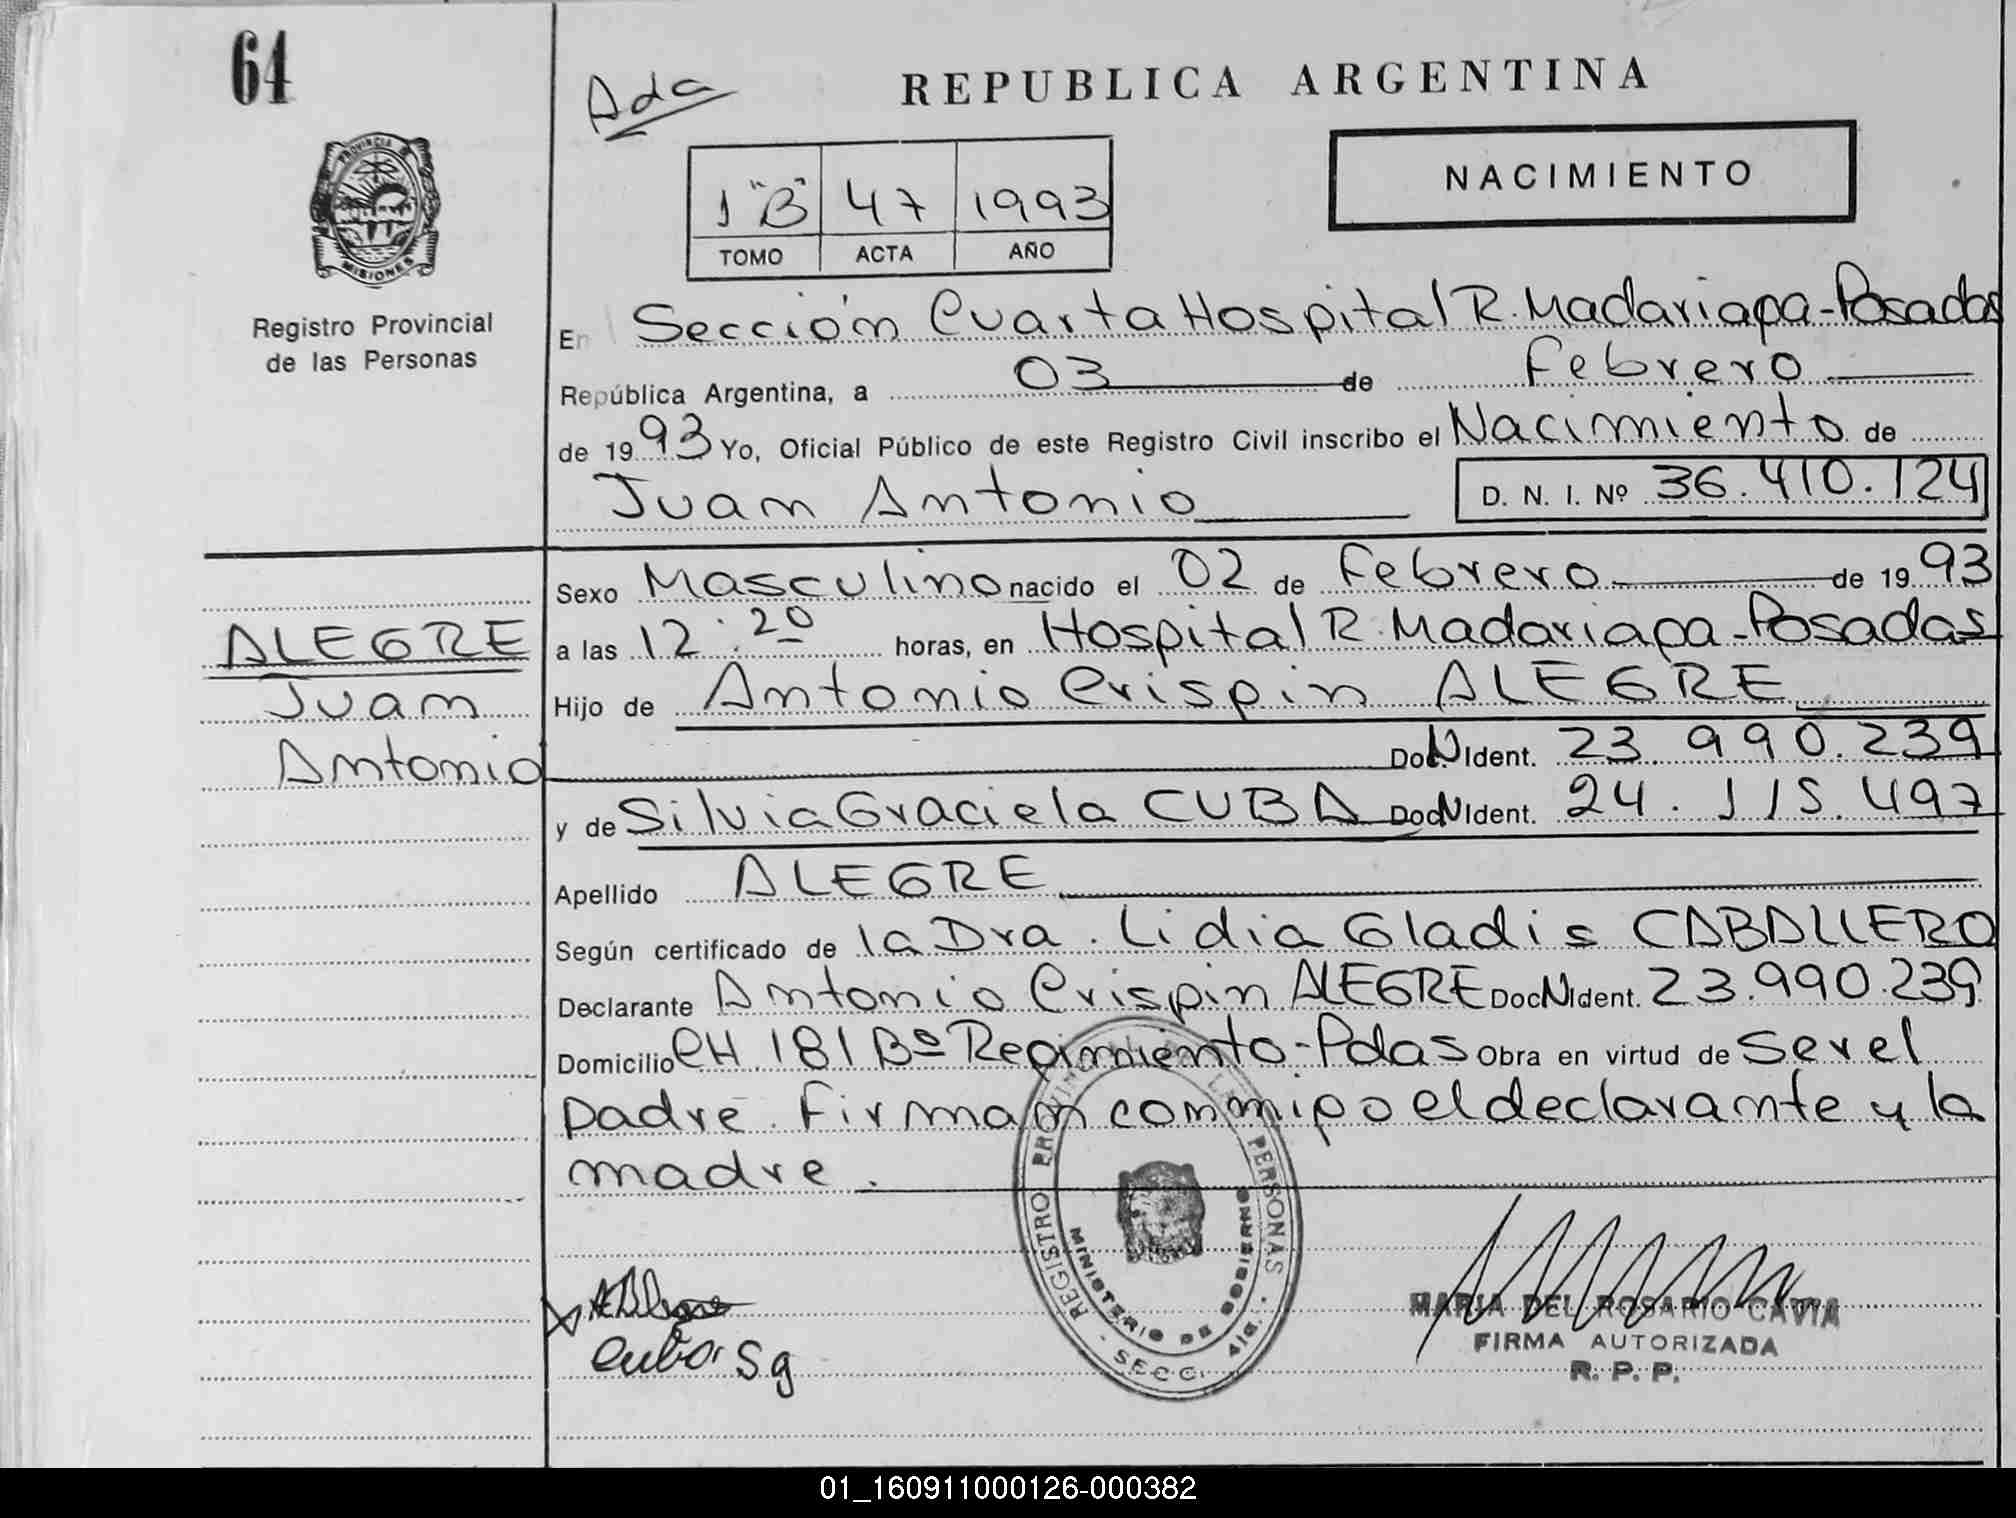 64
Ada
REPUBLICA ARGENTINA
NACIMIENTO
1 "B" 47 1993
TOMO ACTA AÑO
PROVINCIA DE
MISIONES
Registro Provincial
de las Personas
En Sección Cuarta Hospital R. Madariaga-Posadas
República Argentina, a 03 de Febrero
de 1993 Yo, Oficial Público de este Registro Civil inscribo el Nacimiento de
Juan Antonio D. N. I. Nº 36.410.124
Sexo Masculino nacido el 02 de Febrero de 1993
ALEGRE
a las 12:20 horas, en Hospital R. Madariaga-Posadas
Juan
Hijo de Antonio Crispin ALEGRE
Antonio
Doc N Ident. 23.990.239
y de Silvia Graciela CUBA Doc N Ident. 24.115.497
Apellido ALEGRE
Según certificado de la Dra. Lidia Gladis CABALLERO
Declarante Antonio Crispin ALEGRE Doc N Ident. 23.990.239
Domicilio CH.181 Bº Regimiento-Pdas Obra en virtud de Ser el
padre. Firman conmigo el declarante y la
madre.
REGISTRO PROVINCIAL DE LAS PERSONAS
MINISTERIO DE GOBIERNO
SECC. 4ta.
Cuba S g
MARIA DEL ROSARIO CAVIA
FIRMA AUTORIZADA
R. P. P.
01_160911000126-000382